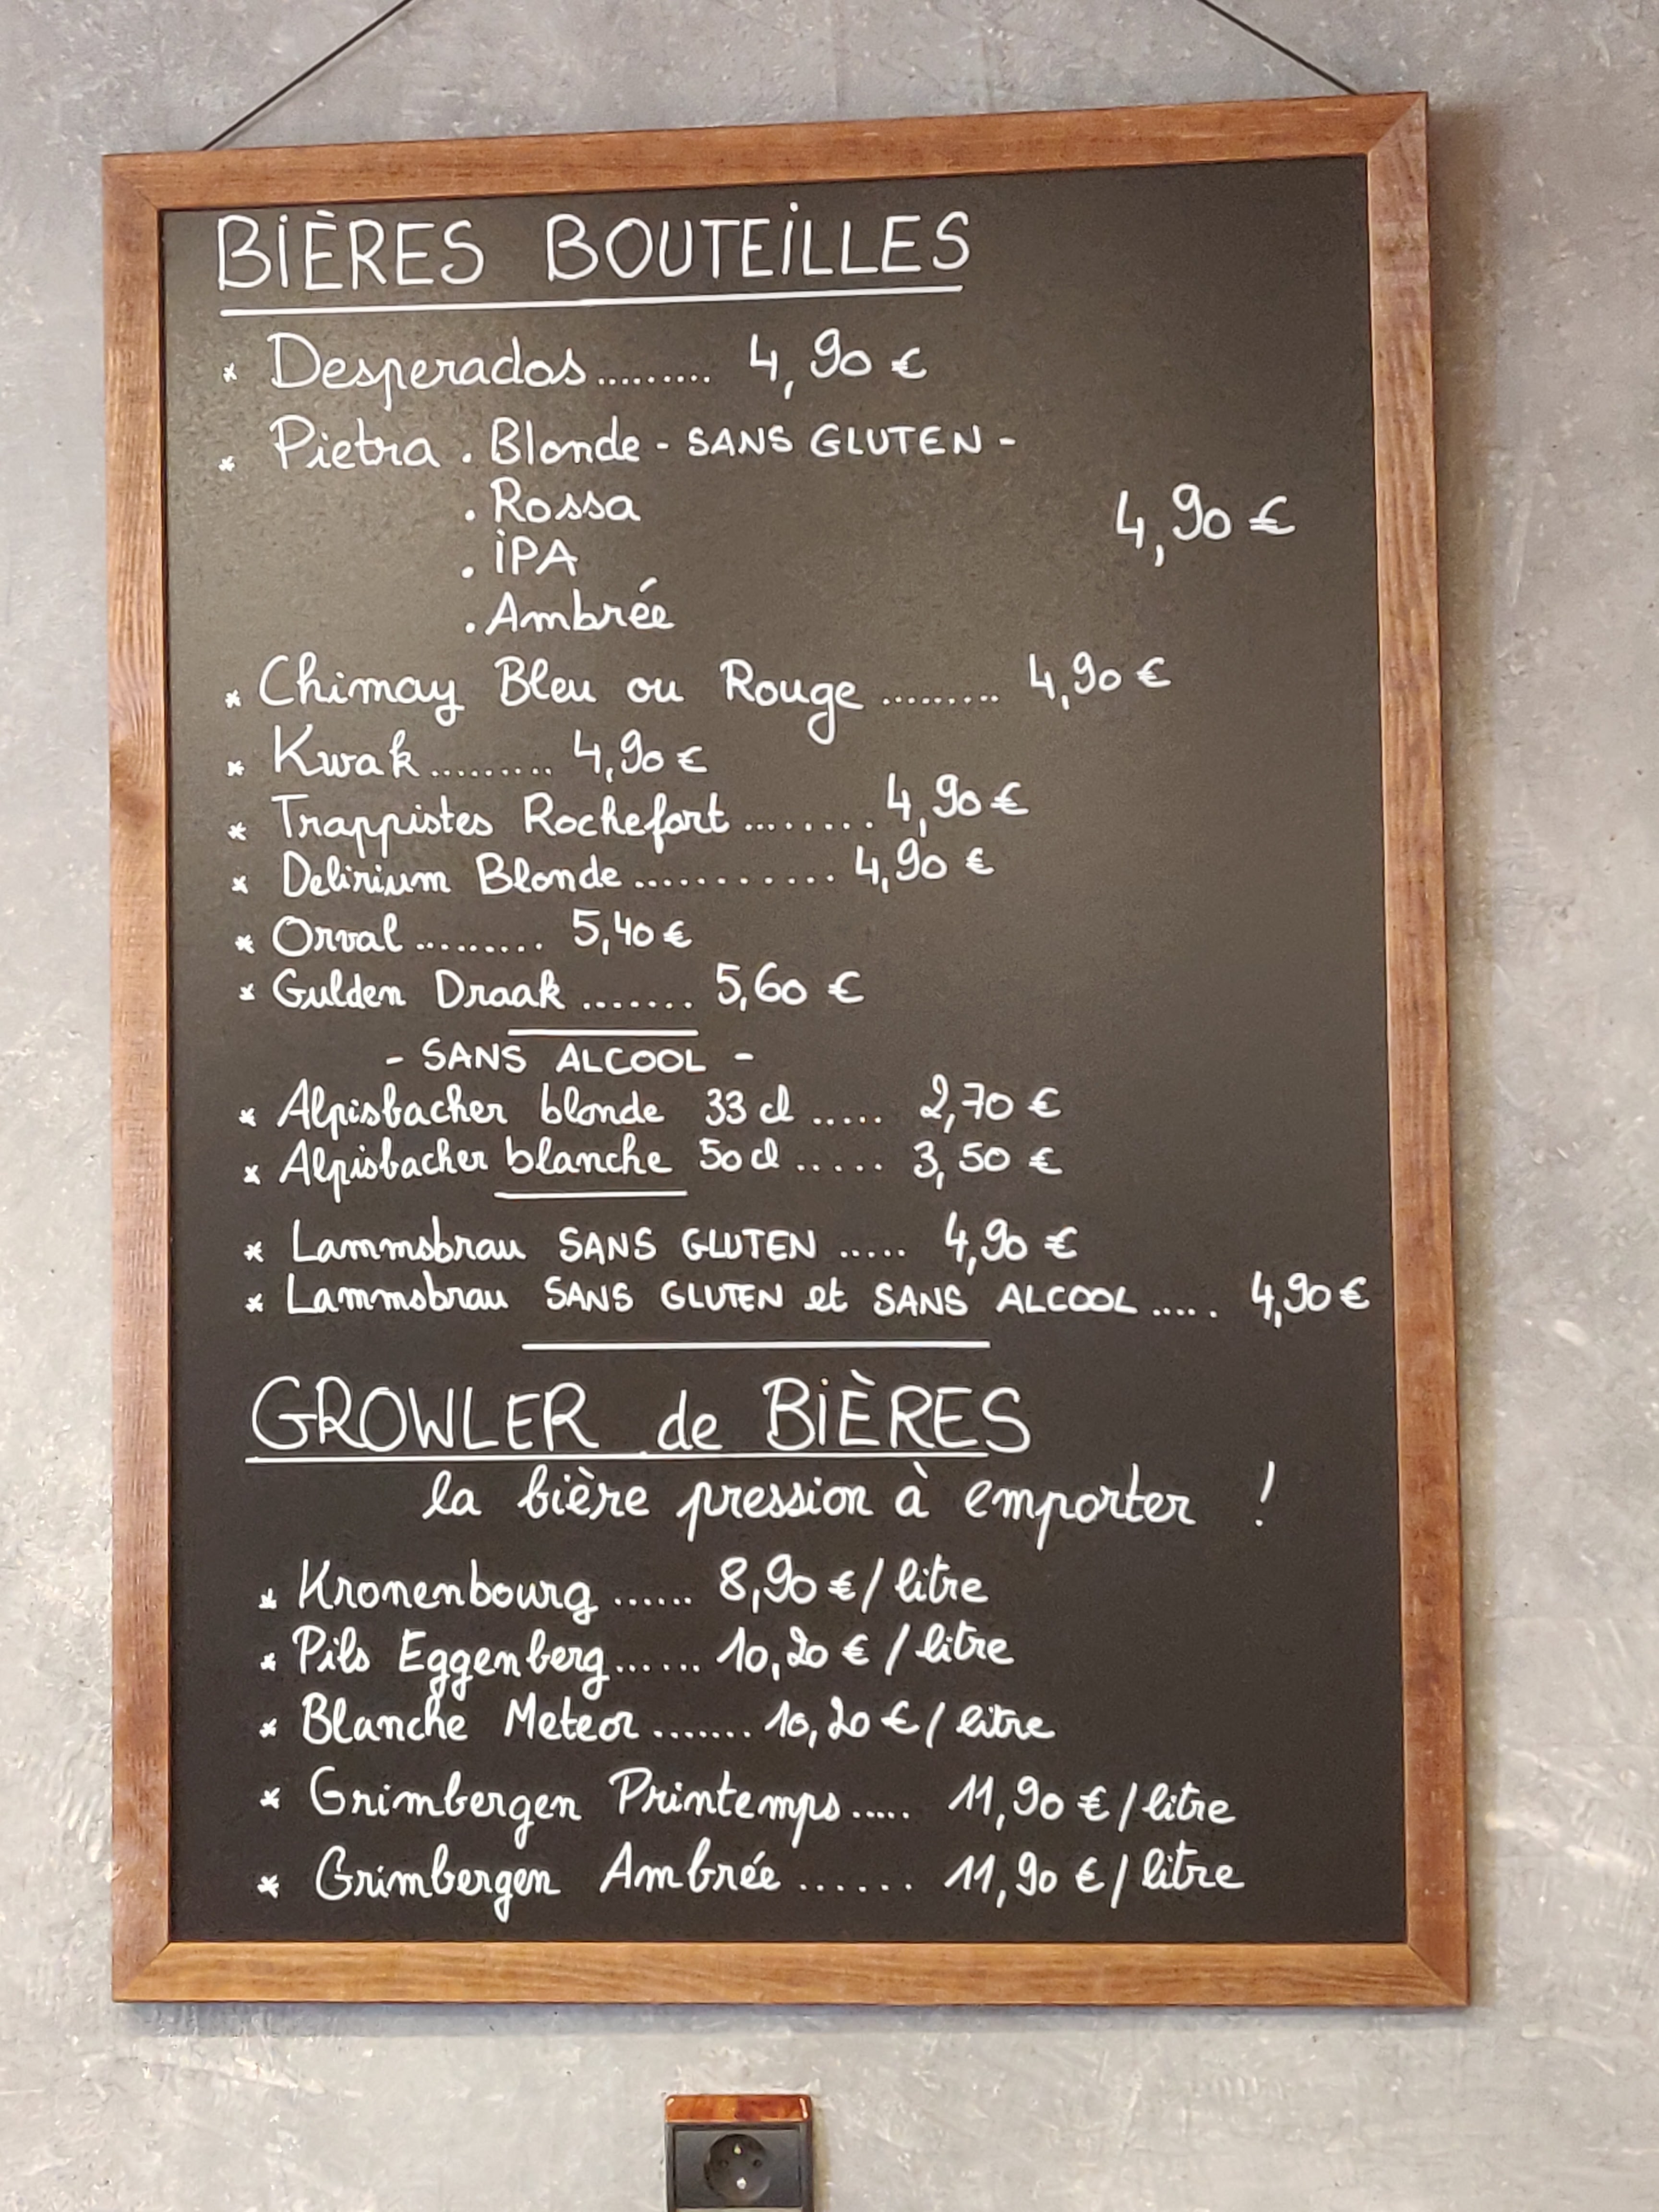 BIÈRES BOUTEILLES
* Desperados......... 4,90 €
* Pietra . Blonde - SANS GLUTEN -
. Rossa
4,90 €
. IPA
. Ambrée
* Chimay Bleu ou Rouge ......... 4,90 €
* Kwak ......... 4,90 €
* Trappistes Rochefort ........ 4,90 €
* Delirium Blonde ........... 4,90 €
* Orval ......... 5,40 €
* Gulden Draak ....... 5,60 €
- SANS ALCOOL -
* Alpisbacher blonde 33 cl ..... 2,70 €
* Alpisbacher blanche 50 cl ..... 3,50 €
* Lammsbrau SANS GLUTEN ..... 4,90 €
* Lammsbrau SANS GLUTEN et SANS ALCOOL ..... 4,90 €
GROWLER de BIÈRES
la bière pression à emporter !
* Kronenbourg ...... 8,90 € / litre
* Pils Eggenberg ...... 10,20 € / litre
* Blanche Meteor ....... 10,20 € / litre
* Grimbergen Printemps ..... 11,90 € / litre
* Grimbergen Ambrée ...... 11,90 € / litre